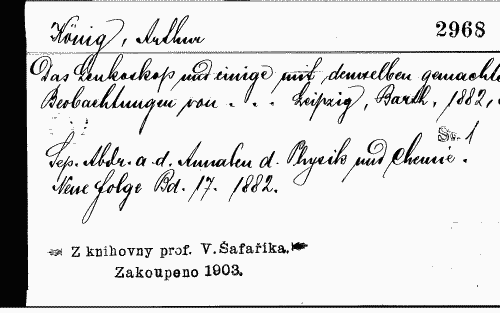 König, Arthur
2968
Das Leukoskop und einige mit demselben gemachte
Beobachtungen von . . . Leipzig, Barth, 1882,
Sv. 1
Sep. Abdr. a. d. Annalen d. Physik und Chemie.
Neue Folge Bd. 17. 1882.
Z knihovny prof. V. Šafaříka.
Zakoupeno 1903.